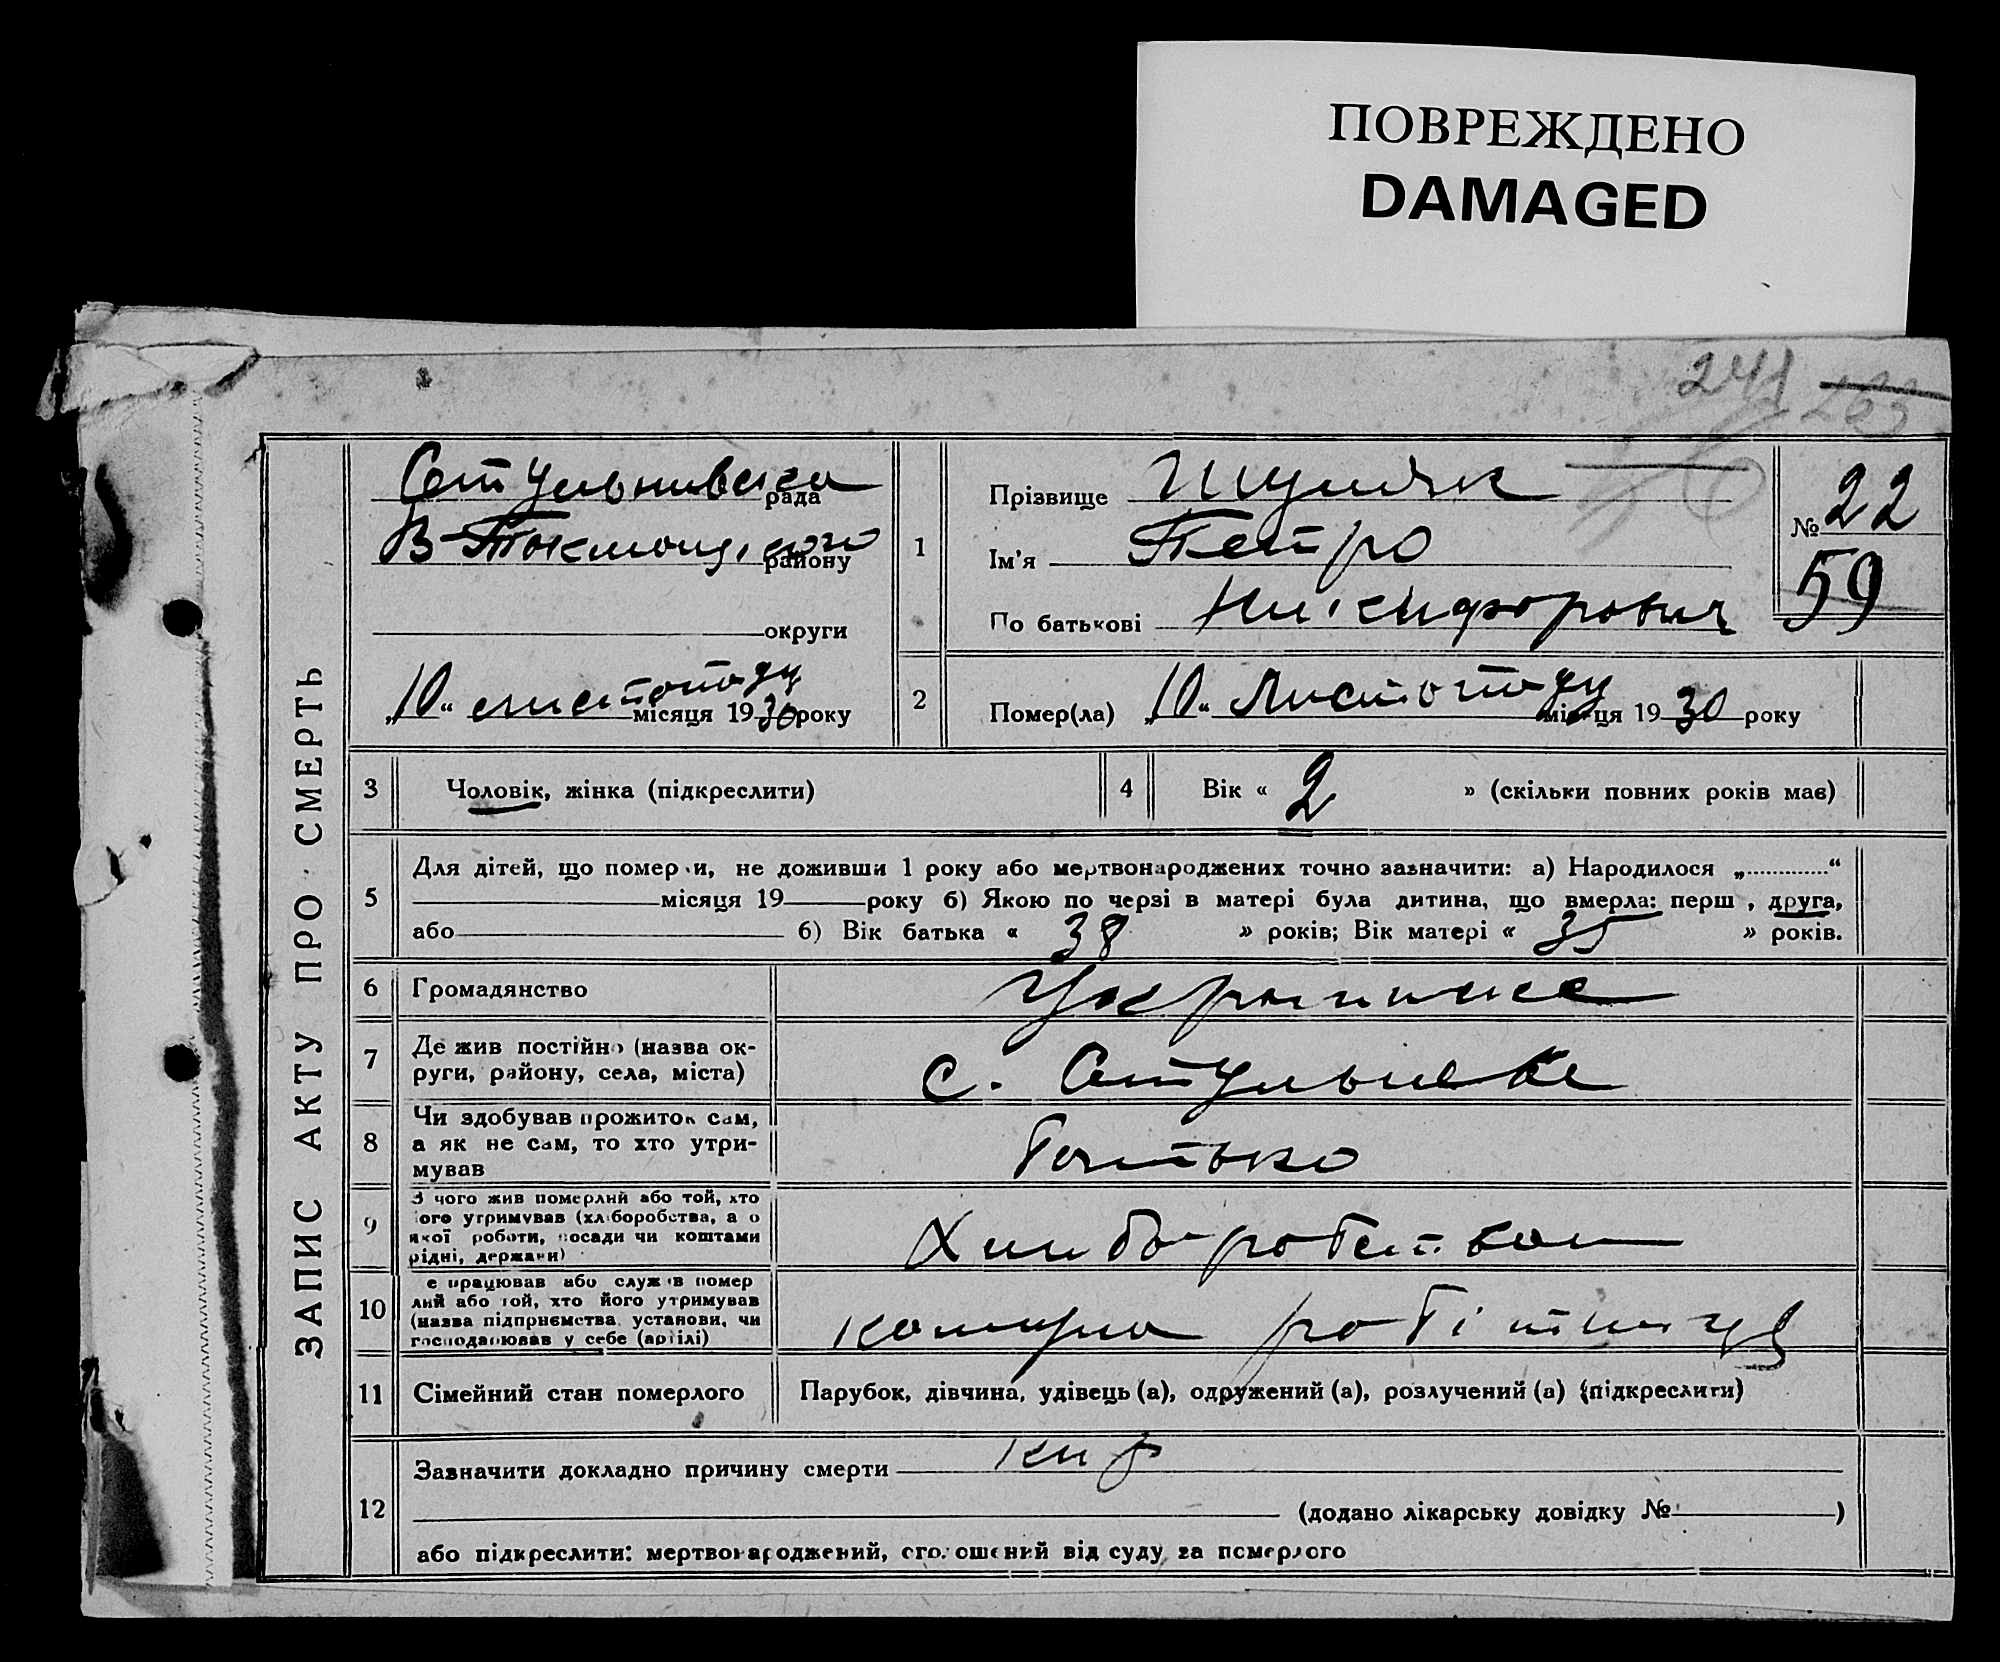 ПОВРЕЖДЕНО
DAMAGED
241
ЗАПИС АКТУ ПРО СМЕРТЬ
Стульнивська рада
В-Токмацького району
округи
„10“ листопаду місяця 1930 року
1
Прізвище Шуляк
Ім'я Петро
По батькові Никифорович
№ 22
59
2
Помер(ла) „10“ Листопаду місяця 1930 року
3 Чоловік, жінка (підкреслити)
4 Вік « 2 » (скільки повних років має)
5
Для дітей, що померли, не доживши 1 року або мертвонароджених точно зазначити: а) Народилося „............“
місяця 19 року б) Якою по черзі в матері була дитина, що вмерла: перш , друга,
або б) Вік батька « 38 » років; Вік матері « 35 » років.
6 Громадянство
7 Де жив постійно (назва ок-
руги, району, села, міста)
с. Стульневе
8 Чи здобував прожиток сам,
а як не сам, то хто утри-
мував
батько
9 З чого жив померлий або той, хто
його утримував (хліборобства, а о
якої роботи, посади чи коштами
рідні, держави)
Хлиборобством
10 е працював або служив помер
лий або той, хто його утримував
(назва підприємства, установи, чи
господарював у себе (артілі)
комуна
11 Сімейний стан померлого
Парубок, дівчина, удівець (а), одружений (а), розлучений (а) (підкреслити)
12
Зазначити докладно причину смерти кир
(додано лікарську довідку № )
або підкреслити: мертвонароджений, оголошений від суду за померлого